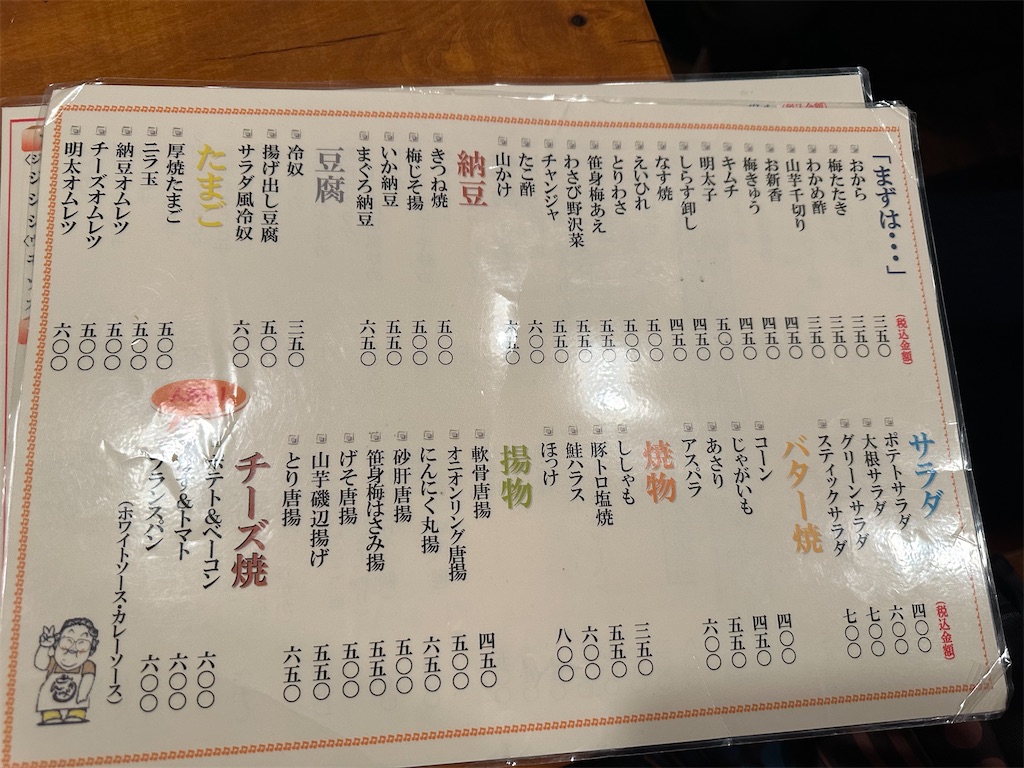 「まずは・・・」 (税込金額)
おから 三五〇
梅たたき 三五〇
わかめ酢 三五〇
山芋千切り 三五〇
お新香 四五〇
梅きゅう 四五〇
キムチ 四五〇
明太子 五〇〇
しらす卸し 四五〇
なす焼 四五〇
えいひれ 五〇〇
とりわさ 五〇〇
笹身梅あえ 五五〇
わさび野沢菜 五五〇
チャンジャ 五五〇
たこ酢 六〇〇
山かけ 六五〇
納豆
きつね焼 五〇〇
梅じそ揚 五〇〇
いか納豆 五五〇
まぐろ納豆 六五〇
豆腐
冷奴 三五〇
揚げ出し豆腐 五〇〇
サラダ風冷奴 六〇〇
たまご
厚焼たまご 五〇〇
ニラ玉 五〇〇
納豆オムレツ 五〇〇
チーズオムレツ 五〇〇
明太オムレツ 六〇〇
サラダ (税込金額)
ポテトサラダ 四〇〇
大根サラダ 六〇〇
グリーンサラダ 七〇〇
スティックサラダ 七〇〇
バター焼
コーン 四〇〇
じゃがいも 四五〇
あさり 五五〇
アスパラ 六〇〇
焼物
ししゃも 三五〇
豚トロ塩焼 五五〇
鮭ハラス 六〇〇
ほっけ 八〇〇
揚物
軟骨唐揚 四五〇
オニオンリング唐揚 五〇〇
にんにく丸揚 六五〇
砂肝唐揚 五〇〇
笹身梅はさみ揚 五五〇
げそ唐揚 五〇〇
山芋磯辺揚げ 五五〇
とり唐揚 六五〇
チーズ焼
ポテト&ベーコン 六〇〇
&トマト 六〇〇
フランスパン 六〇〇
(ホワイトソース・カレーソース)